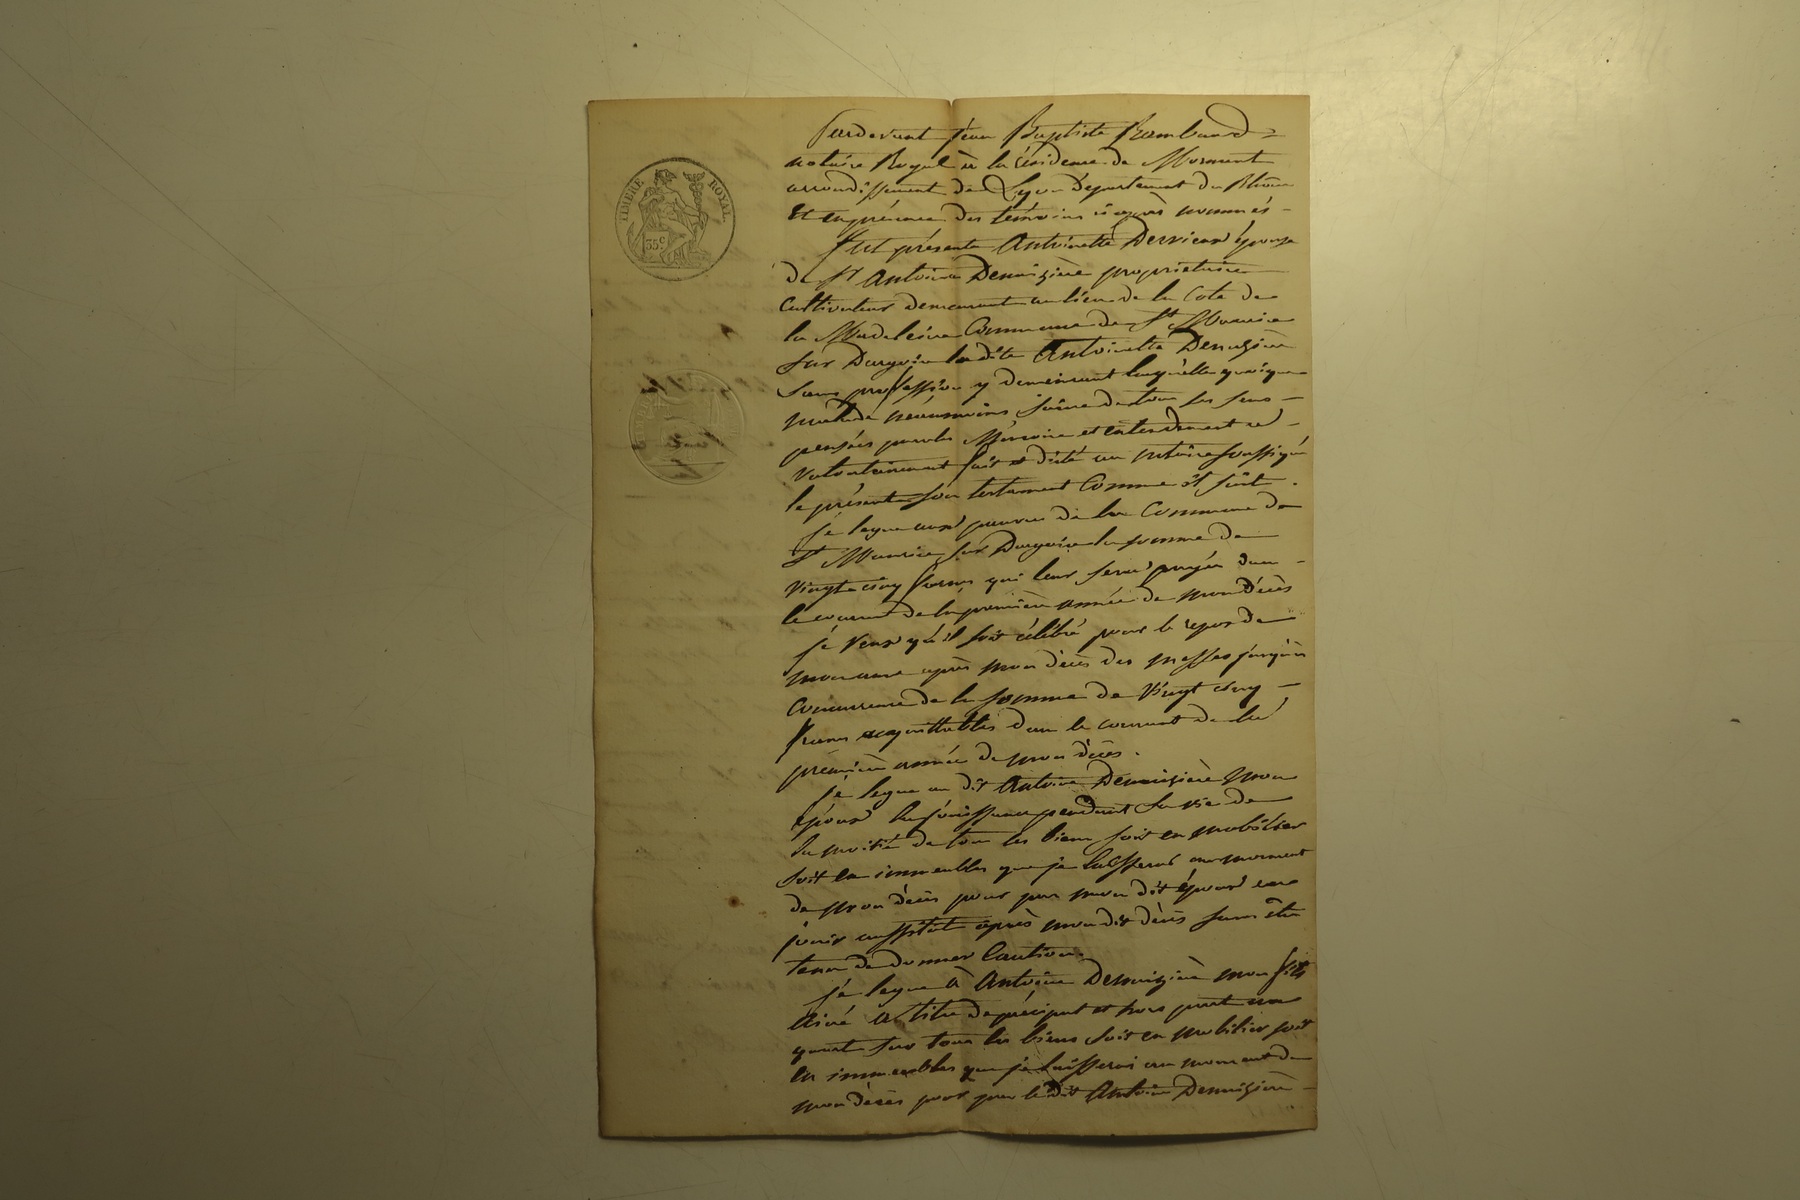 TIMBRE ROYAL
35 c
Pardevant Jean Baptiste Rambaud
notaire Royal à la résidence de Mornant
arrondissement de Lyon Département du Rhône
Et en présence des témoins ci après nommés
fut présente Antoinette épouse
de Sr Antoine Denuizière propriétaire
Cultivateur demeurant au lieu de la Cote de
la Madeleine Commune de St Maurice
sur Dargoire la dite Antoinette
sans profession y demeurant laquelle quoique
malade néanmoins saine de tous ses sens
pensées parole Mémoire et entendement a
volontairement fait et dicté au notaire soussigné
le présent son testament Comme il suit.
je legue aux pauvres de la Commune de
St Maurice sur Dargoire la somme de
Vingt cinq francs qui leur sera payée dans
le courant de la première année de mon décès
je veux qu'il soit célébré pour le repos de
mon ame après mon décès des messes jusqu'à
Concurrence de la somme de Vingt cinq
francs acquittables dans le courant de la
première année de mon décès.
je legue au dit Antoine Denuizière mon
époux la jouissance pendant sa vie de
la moitié de tous les biens soit en mobilier
soit en immeubles que je laisserai au moment
de mon décès pour par mon dit époux en
jouir aussitôt après mon dit décès sans être
tenu de donner Caution.
je legue à Antoine Denuizière mon fils
ainé à titre de préciput et hors part un
quart sur tous les biens soit en mobilier soit
en immeubles que je laisserai au moment de
mon décès pour par le dit Antoine Denuizière